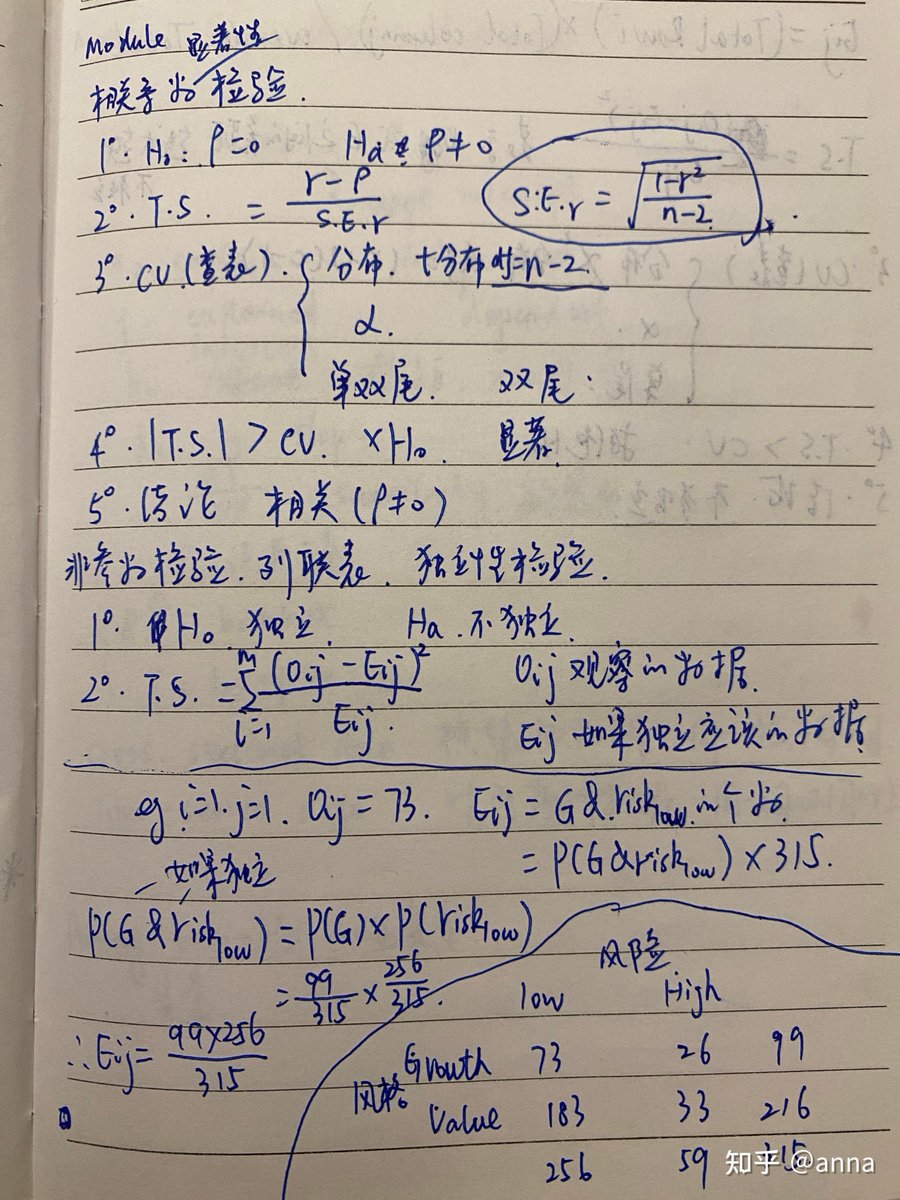 Module 显著性
相关系数检验.
1°. H₀: ρ=0 Ha: ρ≠0
2°. T.S. = (r-ρ)/S.E.r S.E.r = √((1-r²)/(n-2)).
3°. CV(查表). { 分布. t分布 df=n-2.
α.
单双尾. 双尾.
4°. |T.S.| > CV. ×H₀. 显著.
5°. 结论 相关(ρ≠0)
非参数检验. 列联表. 独立性检验.
1°. H₀ 独立. Ha. 不独立.
2°. T.S. = Σ(i=1, m) (Oij-Eij)²/Eij. Oij 观察的数据.
Eij 如果独立应该的数据
eg i=1. j=1. Oij = 73. Eij = G&risk low 的个数.
= P(G&risk low) × 315.
如果独立
P(G&risk low) = P(G)×P(risk low)
= 99/315 × 256/315.
∴Eij = 99×256/315
风险
low High
风格
Growth 73 26 99
Value 183 33 216
256 59 315
知乎 @anna